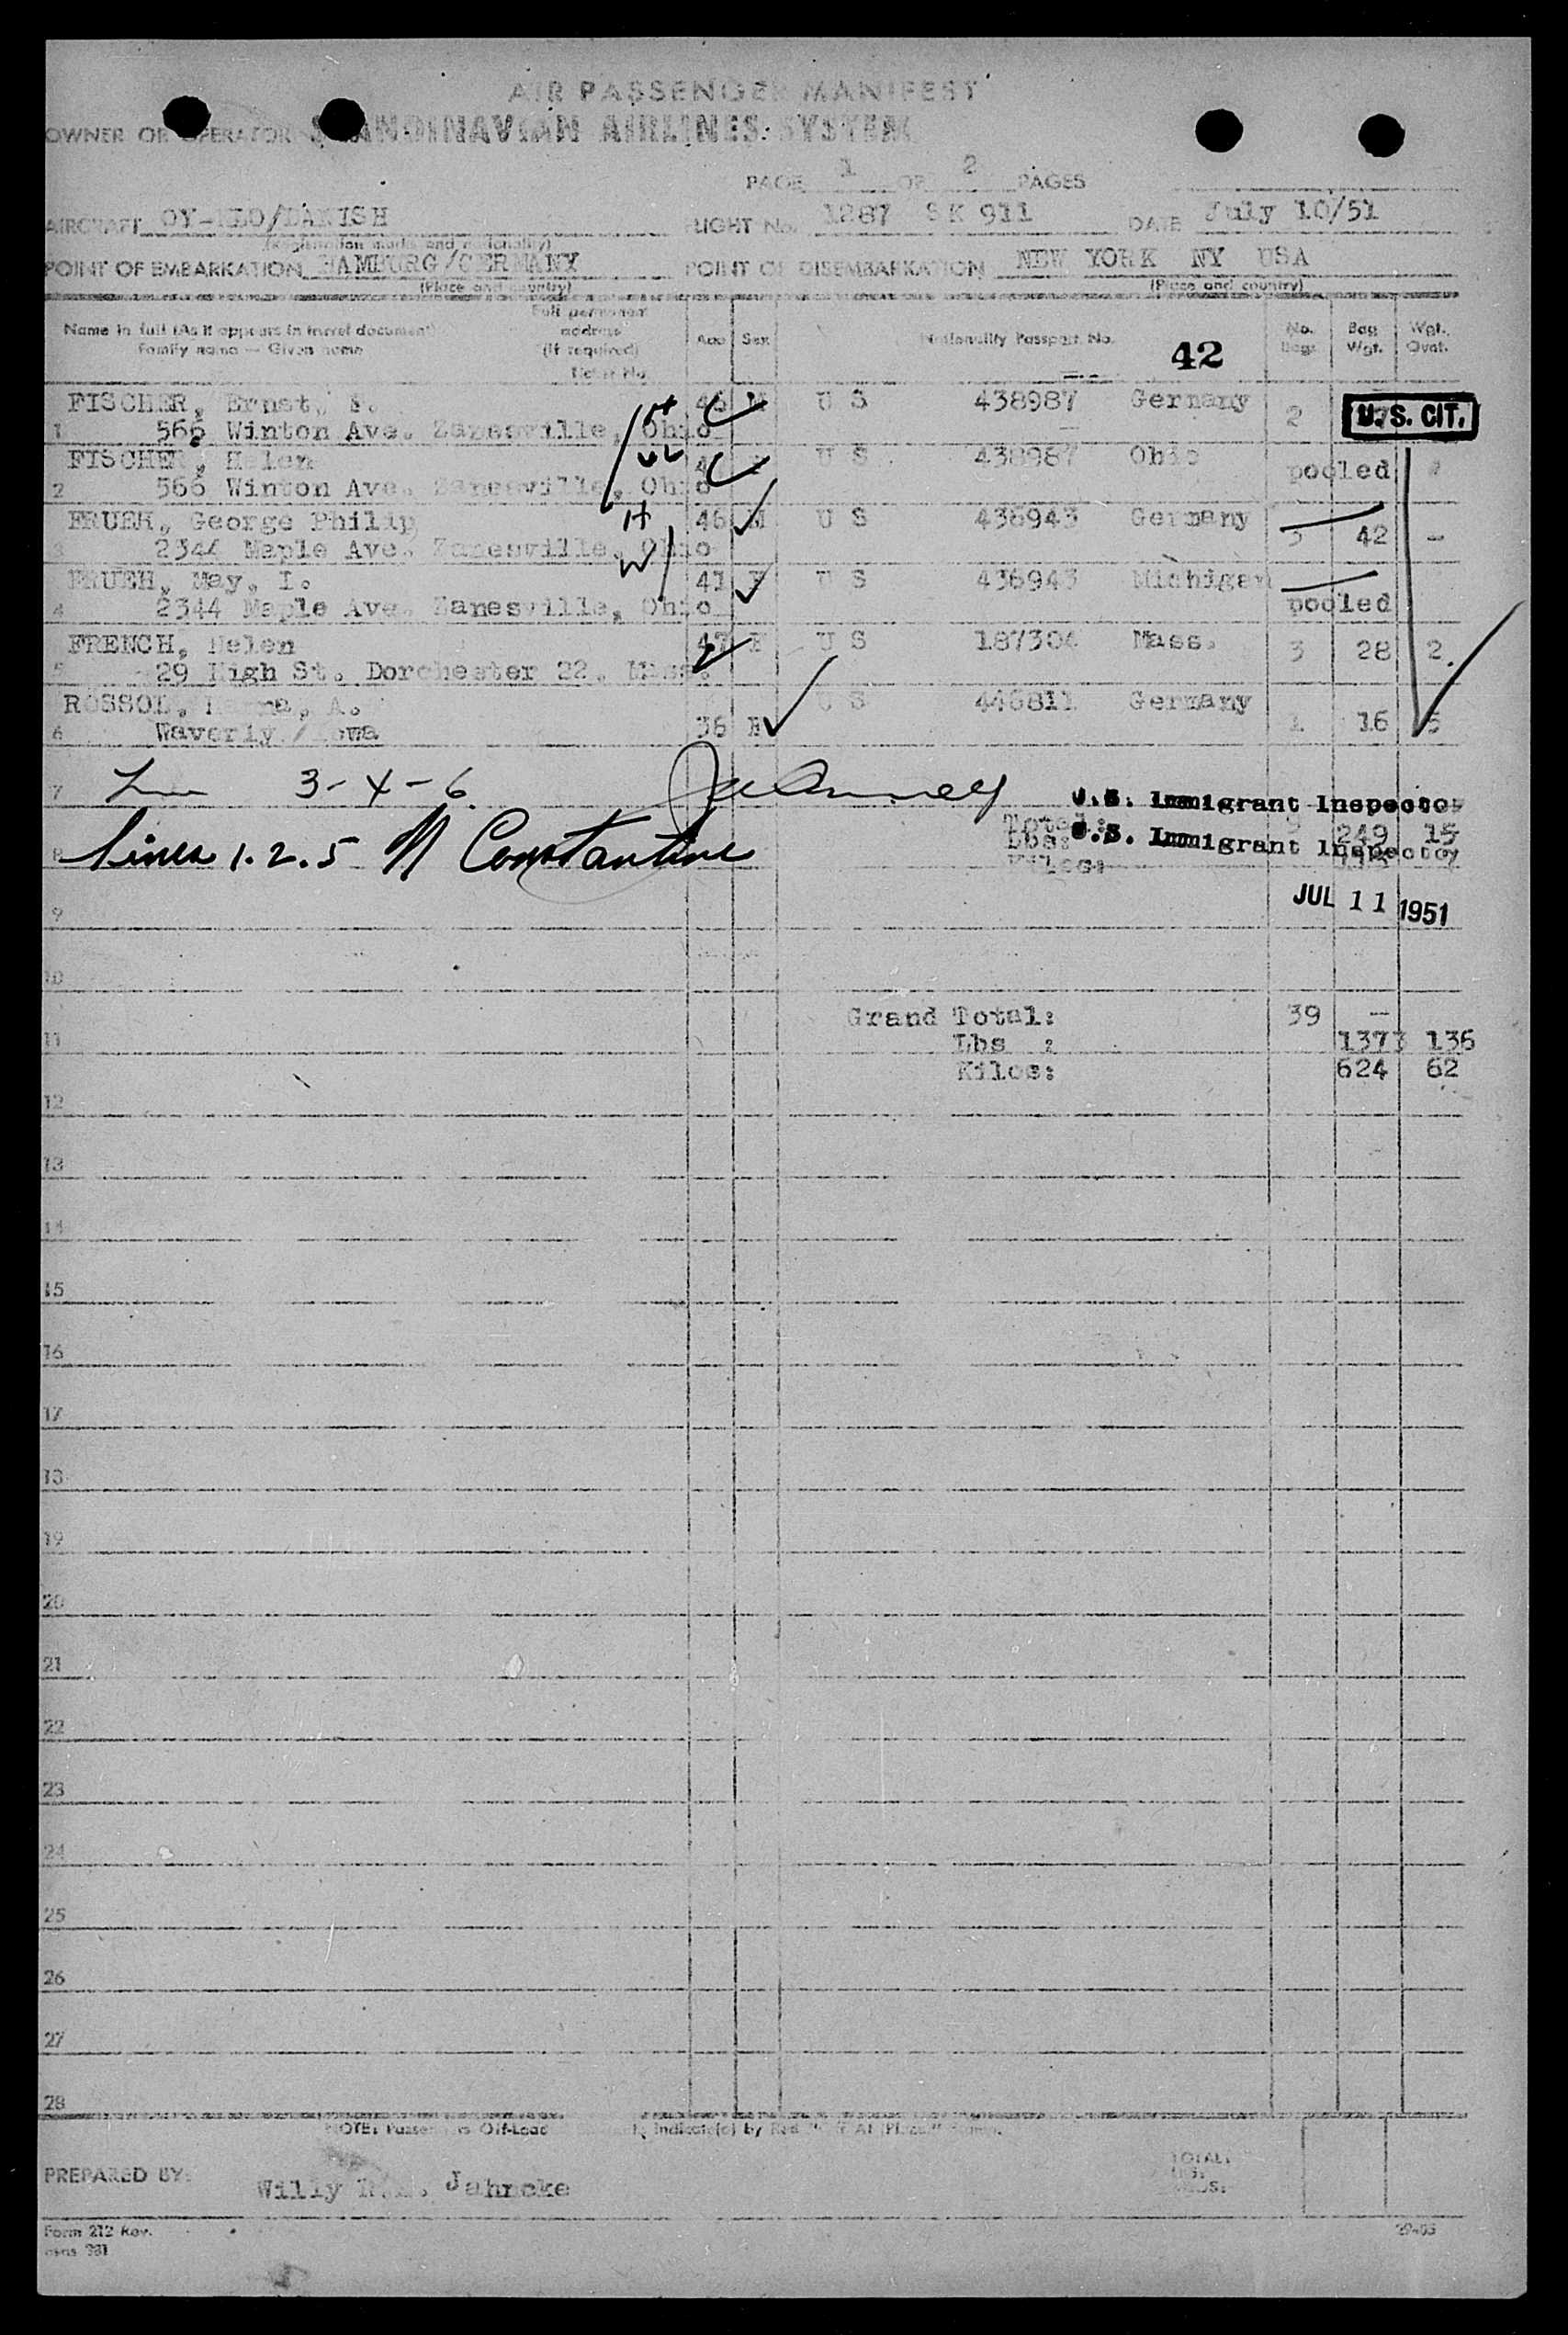 AIR PASSENGER MANIFEST
OWNER OR OPERATOR SCANDINAVIAN AIRLINES SYSTEM
PAGE 1 OF 2 PAGES
AIRCRAFT OY- /DANISH FLIGHT No. 1287 SK 911 DATE July 10/51
(Registration marks and nationality)
POINT OF EMBARKATION HAMBURG/GERMANY POINT OF DISEMBARKATION NEW YORK NY USA
(Place and country) (Place and country)
Name in full (As it appears in travel document) Full permanent address (If required) Age Sex Nationality Passport No. No. Bags Bag Wgt. Wgt. Ovnt.
Family name — Given name Ticket No. 42
FISCHER, Ernst, M U S 438987 Germany 2 U.S. CIT.
1 566 Winton Ave. Zanesville, Ohio H
FISCHER, Helen U S 438987 Ohio pooled
2 566 Winton Ave. Zanesville, Ohio
FRUEH, George Philip H 46 M U S 436943 Germany 3 42 -
3 2344 Maple Ave. Zanesville, Ohio W
FRUEH, May, I. 41 F U S 436943 Michigan pooled
4 2344 Maple Ave. Zanesville, Ohio
FRENCH, Helen 47 F U S 187304 Mass. 3 28 2.
5 29 High St. Dorchester 22, Mass.
ROSSOL, A. U S 446811 Germany
6 Waverly / Iowa 36 F 1 16 5
7 3-4-6
U.S. Immigrant Inspector
Total:
Lbs: 249 15
8 Lines 1.2.5 N Constantine U.S. Immigrant Inspector
Kilos:
JUL 11 1951
9
10
Grand Total: 39 —
11 Lbs : 1373 136
Kilos: 624 62
12
13
14
15
16
17
18
19
20
21
22
23
24
25
26
27
28
NOTE: Passengers Off-Load indicate(d) by Red
PREPARED BY: Willy Jahncke TOTAL:
Form 212 Rev.